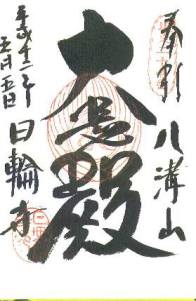 奉拝 八溝山
大悲殿
日輪寺
平成十二年
五月五日